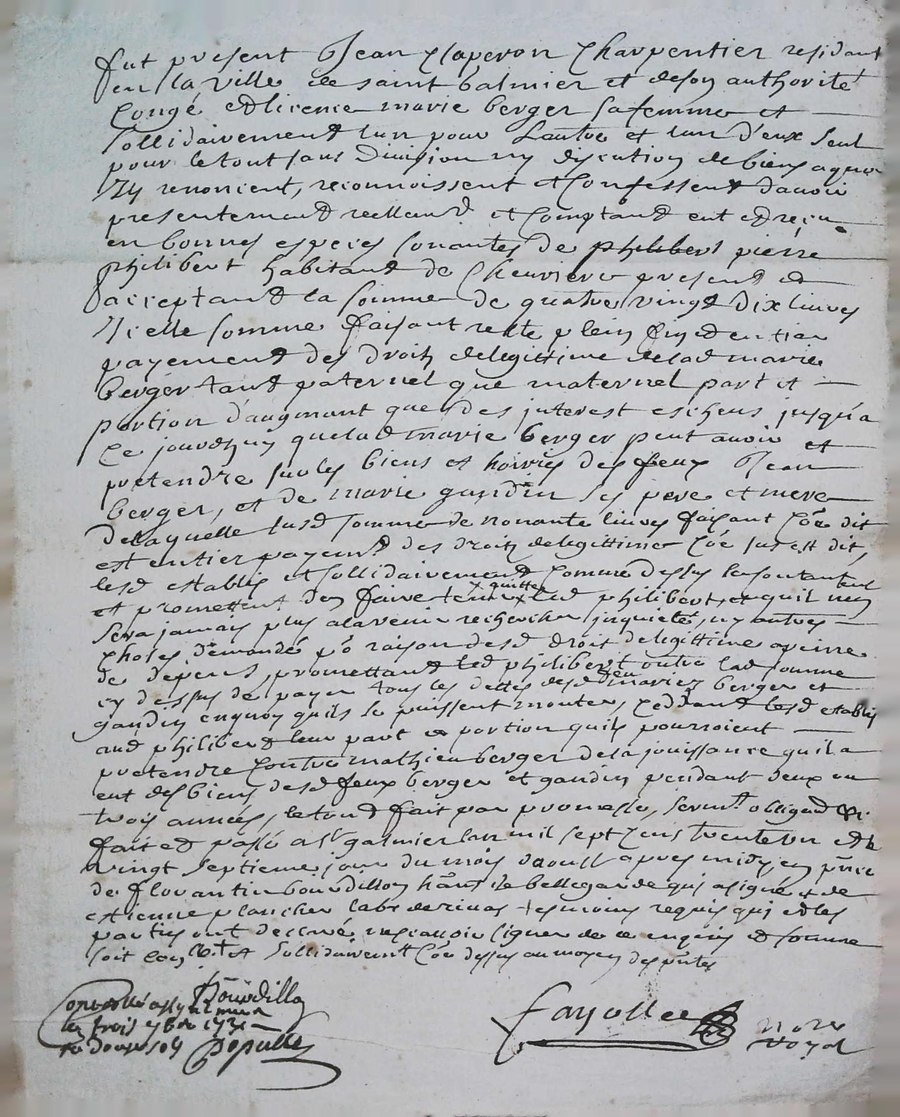 fut present Jean Claperon Charpentier residant
en la ville de saint balmier et de son authorité
Congé et licence marie berger sa femme et
sollidairement lun pour Lautre et lun d'eux seul
pour le tout sans Division ny discution de biens a quoy
Izy renoncent, reconnoissent et Confessent d'avoir
presentement reellemt et Comptant eut et reçu
en bonnes especes sonantes de philibert pierre
philibert habitant de Chevriere present et
acceptant la somme de quatre vingt dix livres
Icelle somme faisant reste plein fin et entier
payement des droits de legittime de lad marie
berger tant paternel que maternel part et
portion d'augmant que des interest escheus jusqu'a
Ce jourdhuy que lad marie berger peut avoir et
pretendre sur les biens et hoiries des feux Jean
berger, et de marie gaudin ses pere et mere
De laquelle susd somme de nonante livres faisant Coe dit
est entier payemt des droits de legittime Coe sus est dit,
lesd establis et sollidairement comme dessus se contentent
et promettent den faire tenir x quitte x led philibert, et quil nen
sera jamais plus a lavenir recherché inquieté, ny autres
choses demandé po raison desd droit de legittime a peine
de depens, promettant led philibert outre lad somme
cy dessus de payer tous les dettes desd feu mariez berger et
gaudin en quoy quils se puissent monter, ceddant lesd establis
aud philibert leur part et portion quils pourroient
pretendre contre mathieu berger de la jouissance quil a
eut des biens desd feux berger et gaudin pendant deux ou
trois années, le tout fait par promesse, sermt obligaon &c
fait et passé a st galmier lan mil sept cens trente un et le
vingt septieme jour du mois daoust apres midy en pnce
de florantin bourdillon hant de bellegarde qui a signé et de
estienne plancher labr de rivas tesmoins requis qui et les
partis ont declaré ne scavoir signer de ce enquis et somme
soit sollidairemt Coe dessus au moyen des pntes
Bourdillon
Controllé a st galmier
le trois 7bre 1731
R douze sols Populle
fayolle nore
royal